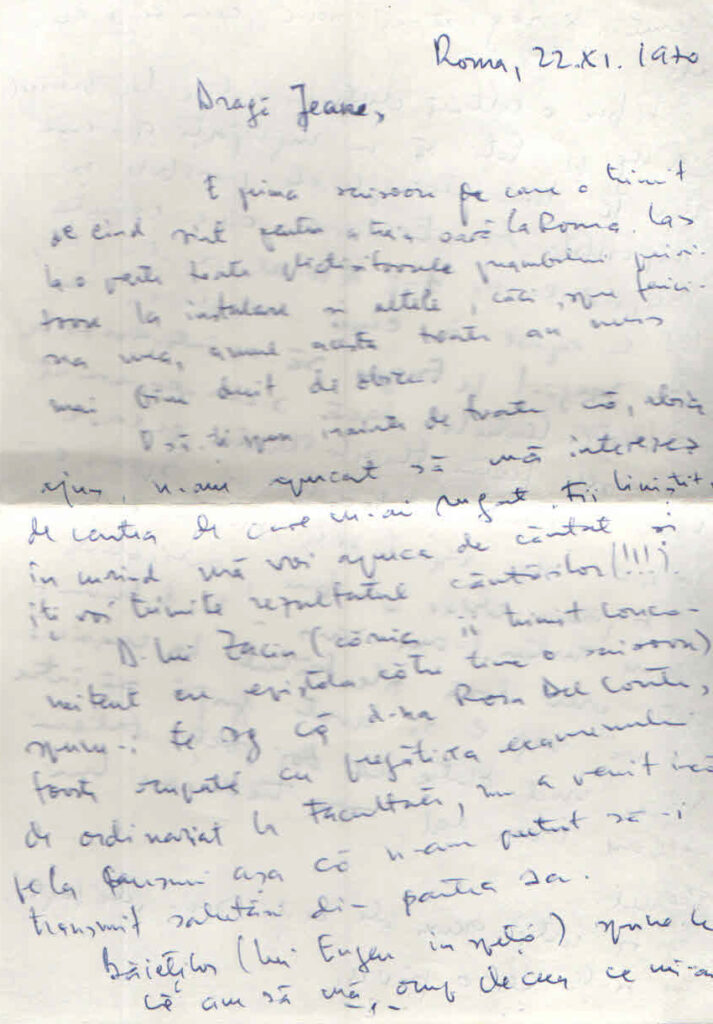 Roma, 22.XI. 1970
Dragă Jeane,
E prima scrisoare pe care o trimit
de cînd sînt pentru a treia oară la Roma. Las
la o parte toate plictisitoarele preambuluri privi-
toare la instalare și altele, căci, spre ferici-
rea mea, anul acesta toate au mers
mai bine decît de obicei.
O să-ți spun înainte de toate că, abia
ajuns, n-am apucat să mă interesez
de cartea de care m-ai rugat. Fii liniștit,
în curînd mă voi apuca de căutat și
îți voi trimite rezultatul căutărilor (!!!).
D-lui Zaciu (căruia îi trimit conco-
mitent cu epistola către tine o scrisoare)
spune-i te rog că d-na Rosa Del Conte,
foarte ocupată cu pregătirea examenului
de ordinariat la Facultate, nu a venit încă
pe la așa că n-am putut să-i
transmit salutări din partea sa.
Băieților (lui Eugen în speță) spune-le
că am să mă ocup de ceea ce mi-au